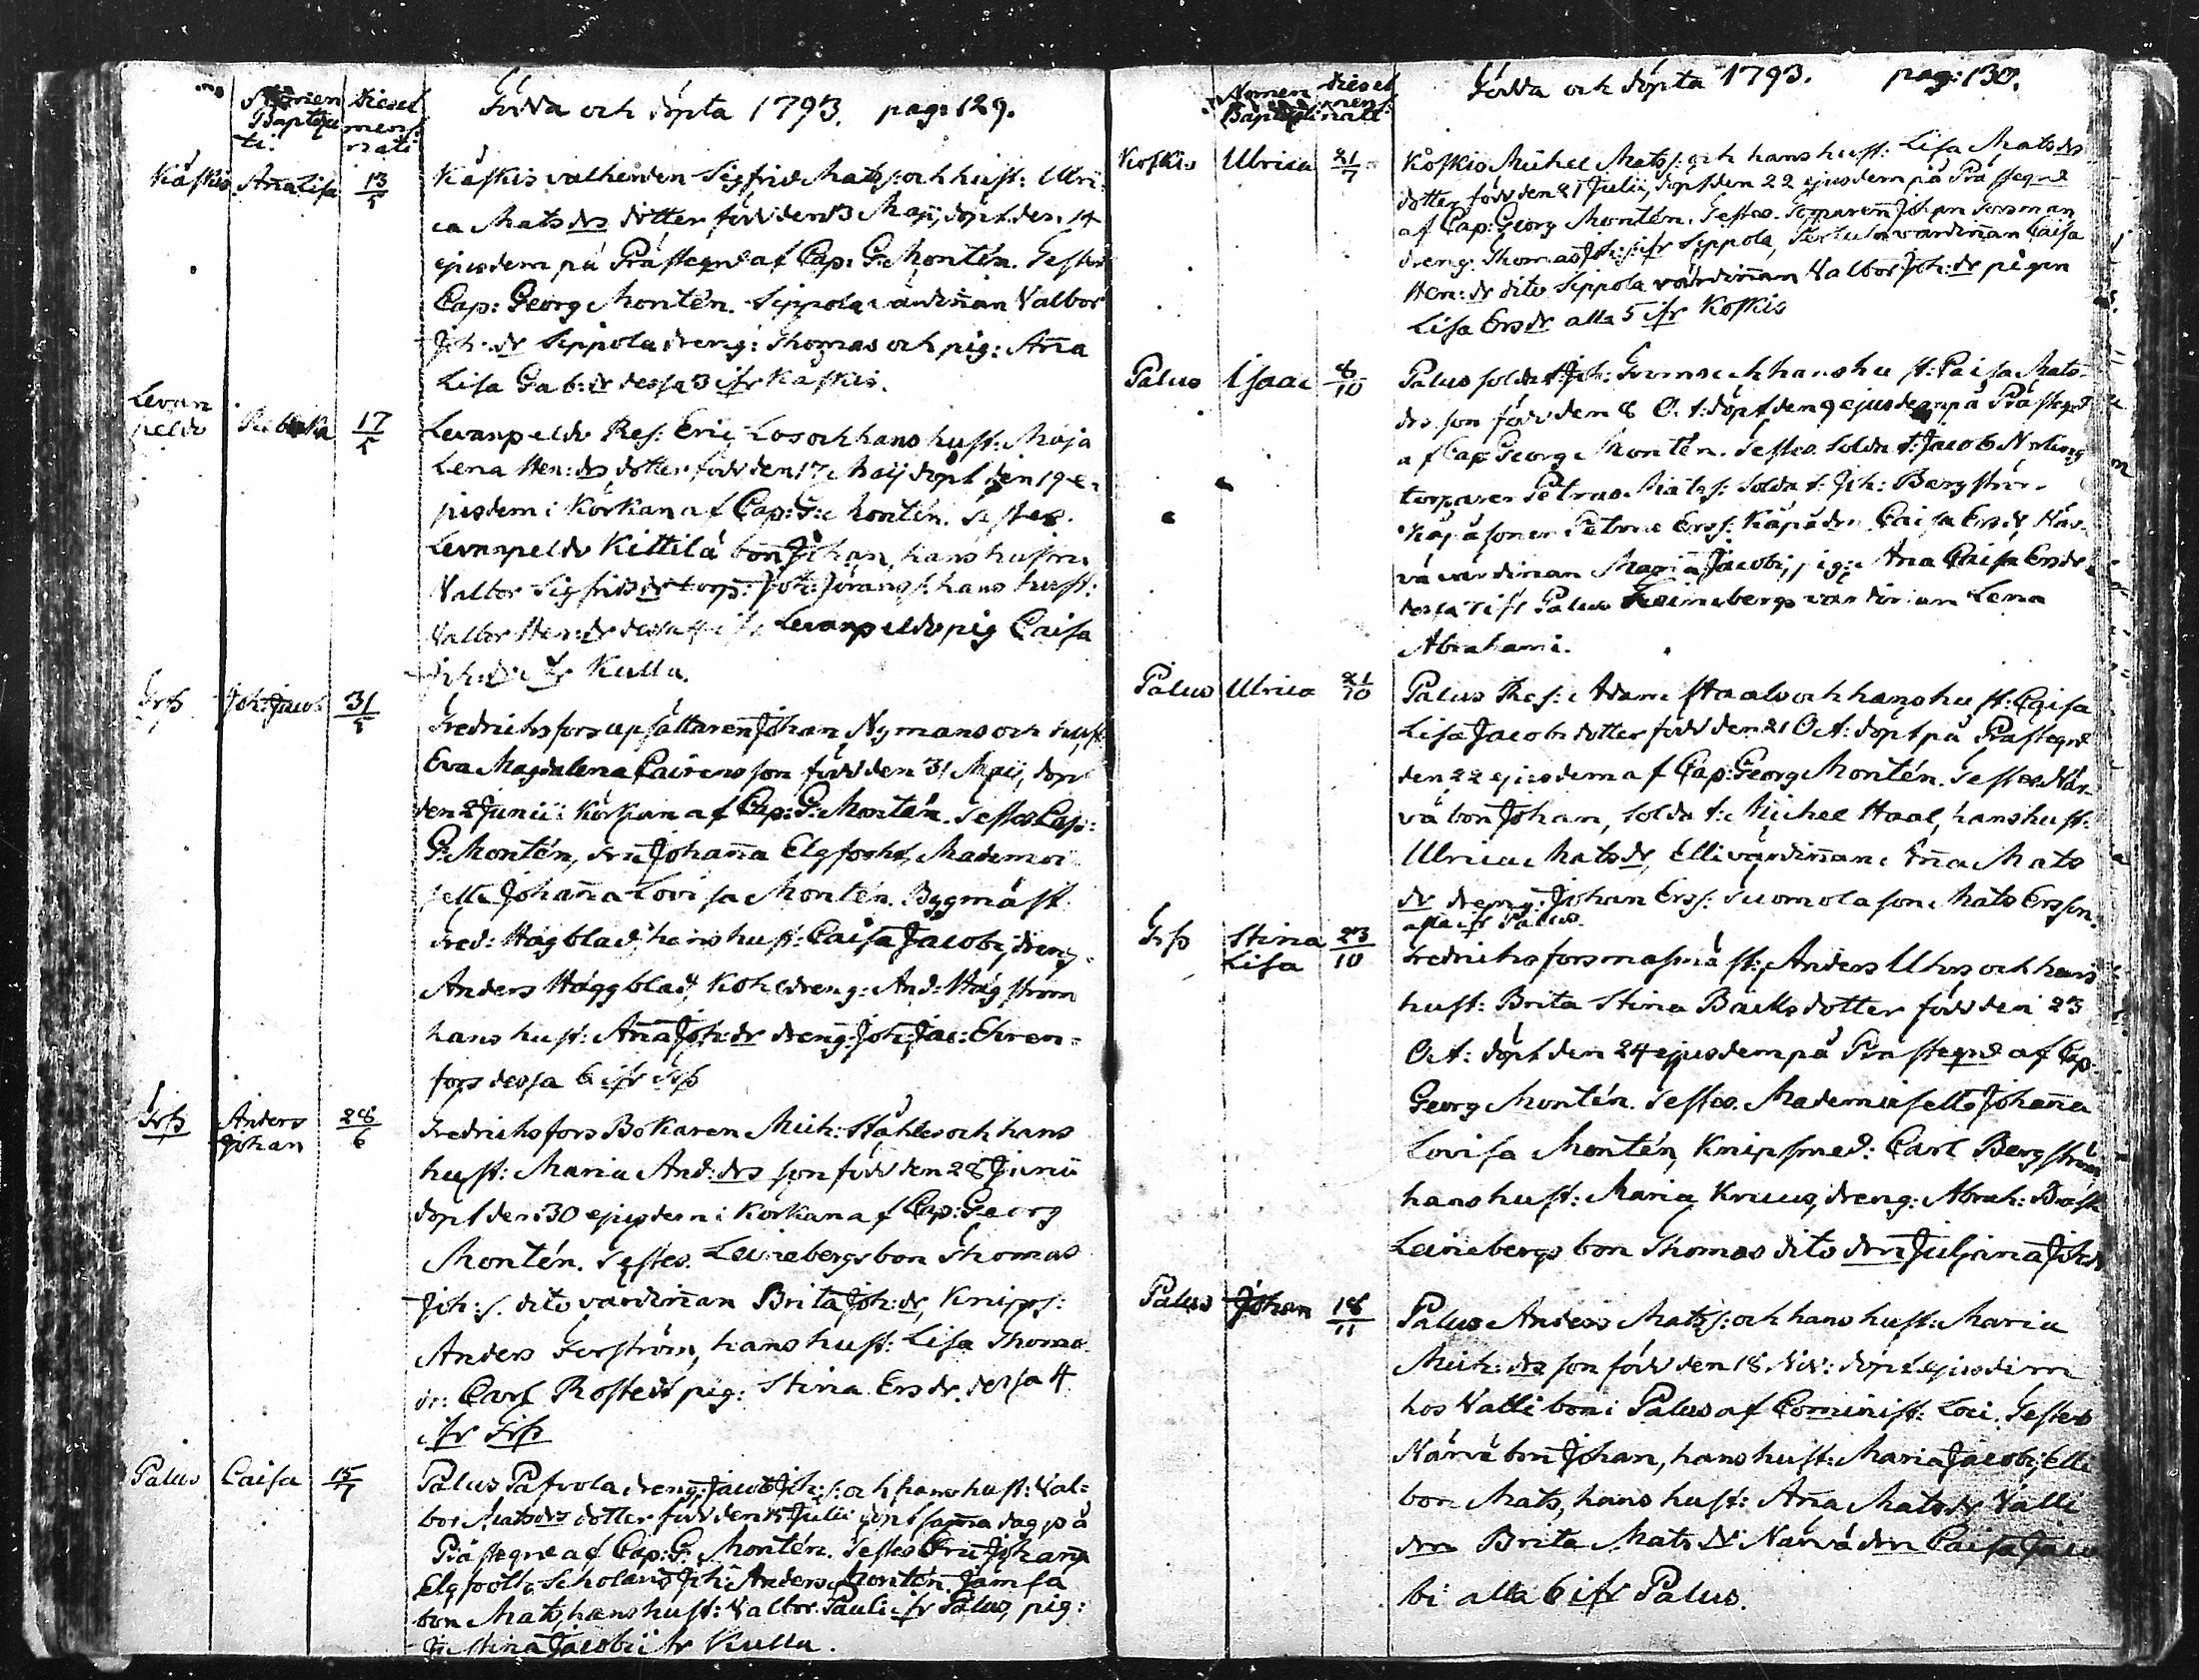 Nomen Baptiza
ti.
dies et
mens:
nati
Födda och döpta 1793. pag: 129.
Kåskis Analisa 13/5
Kåskis valherden Sigfrid Mats s: och hust: Ulri-
ca Mats drs dotter född den 13 Maji, döpt den 14
ejusdem på Prästegrd af Cap: G: Montén. Testes
Cap: Georg Montén. Sippola värdiñan Valbor
Joh: dr Sippola dreng: Thomas och pig: Aña
Lisa Gab: dr dessa 3 ifr Kaskis.
Levan
peldo Rebeka 17/5
Levanpeldo Res: Eric Los och hans hust: Maja
Lena Hen: drs dotter född den 17 Maij döpt den 19 e-
jusdem i Körkan af Cap: G: Montén. Testes.
Levanpeldo Kittilä bon Johan, hans hustru
Valbor Sigfrids dr torp: Joh: Jörans s: hans hust:
Valbor Hen: dr dessa ifr Levanpeldo pig Caisa
Joh: dr ifr Kulla.
Frß Joh: Jacob 31/5
Fredrichsfors upsättaren Johan Nymans och hust:
Eva Magdalena Cairens son född den 31 Maij, döpt
den 2 Junii i Körkan af Cap: G: Montén. Testes Cap:
G: Montén, fru Johaña Elgfooht, Mademoi-
selle Johaña Lovisa Montén. Bygmäst:
Fred: Hägblad, hans hust: Caisa Jacobi, dreng:
Anders Häggblad, Kohldreng: And: Hägström
hans hust: Aña Joh: dr dreng: Joh: Jac: Ehren-
fors dessa 6 ifr Frß
Frß Anders
Johan 28/6
Fredrichsfors Bokaren Mich: Ståhles och hans
hust: Maria And: drs son född den 28 Junii
döpt den 30 ejusdem i Körkan af Cap: Georg
Montén. Testes. Leinebergs bon Thomas
Joh: s. dito värdiñan Brita Joh: dr, Knips:
Anders Forström, hans hust: Lisa Thoma
dr: Carl Rostedt pig: Stina Ers dr. dessa 4
ifr Frß
Palus Caisa 15/7
Palus Pafvola dreng: Jacob Joh: s: och hans hust: Val-
bor Mats drs dotter född den 15 Julii döpt saṁa dag på
Prästegrd af Cap: G: Montén. Testes Fru Johaña
Elgfooht, Scholaris Joh: Anders Montén. Jamsa
bon Mats, hans hust: Valbor Pauli ifr Palus, pig:
Stina Jacobi ifr Kulla.
Nomen
Baptizati
dies et
mens:
nati
Födda och döpta 1793. pag: 130.
Koskis Ulrica 21/7
Koskis Michel Mats s: och hans hust: Lisa Mats drs
dotter född den 21 Julii, döpt den 22 ejusdem på Prästegrd
af Cap: Georg Montén. Testes. Torparen Johan Forsman
dreng: Thomas Joh: s: ifr Sippola, värdiñan Caisa
Hen: dr dito Sippola värdiñan Valbor Joh: dr pigan
Lisa Ers dr alla 5 ifr Koskis
Palus Isaac 8/10
Palus soldat: Joh: Froms och hans hust: Caisa Mats-
drs son född den 8 Oct: döpt den 9 ejusdem på Prästegrd
af Cap: Georg Montén. Testes. Soldat: Jacob Norling
torparen Petrus Mats s: Soldat: Joh: Bergström
Käpäsonen Petrus Ers s: Käpä drn Caisa Ers dr, När-
vä värdiñan Maria Jacobi, pig: Ana Caisa Ers dr
dessa ifr Palus Leinebergs värdiñan Lena
Abrahami.
Palus Ulrica 21/10
Palus Res: Adam Staals och hans hust: Caisa
Lisa Jacobi dotter född den 21 Oct: döpt på Prästegrd
den 22 ejusdem af Cap: Georg Montén. Testes När-
vä bon Johan, Soldat: Michel Haal, hans hust:
Ulrica Mats dr, Elli värdiñan Aña Mats
dr dreng: Johan Ers s: Suomola son Mats Ersson.
alla ifr Palus.
Frß Stina
Lisa 23/10
Fredrichsfors masmäst: Anders Uhrs och hans
hust: Brita Stina Bäcks dotter född den 23
Oct: döpt den 24 ejusdem på Prästegrd af Cap:
Georg Montén. Testes. Mademoiselle Johaña
Lovisa Montén, Knipsmed: Carl Bergström
hans hust: Maria Kruus, dreng: Abrah:
Leinebergs bon Thomas dito drn Juliana Joh: dr
Palus Johan 18/11
Palus Anders Mats s: och hans hust: Maria
Mich: drs son född den 18 Nov: döpt ejusdem
hos Valli bon i Palus af Cominist: Loci. Testes
Närvä bon Johan, hans hust: Maria Jacobi, Elli
bon Mats, hans hust: Aña Mats dr Valli
drn Brita Mats dr Närvä drn Caisa Jaco
bi alla 6 ifr Palus.